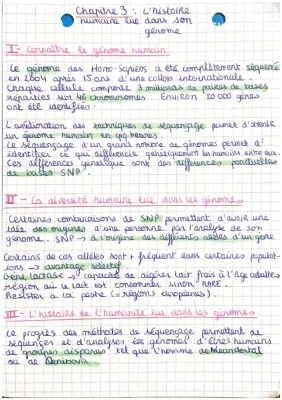 Chapitre 3 : L'histoire
humaine lue dans son
génome
I - Connaître le génome humain
Le génome des Homo-Sapiens a été complètement séquencé
en 2004 après 15 ans d'une collab internationale.
Chaque cellule comporte 3 milliards de paires de bases
réparties sur 46 chromosomes. Environ 20 000 gènes
ont été identifiés.
L'amélioration des techniques de séquençage permet d'obtenir
un génome humain en qq heures.
Le séquençage d'un grand nombre de génomes permet d'
identifier ce qui différencie génétiquement les humains entre eux.
Ces différences génétiques sont des différences ponctuelles
de bases SNP.
II - La diversité humaine lue dans les génomes
Certaines combinaisons de SNP permettent d'avoir une
idée des origines d'une personne par l'analyse de son
génome. SNP → à l'origine des différents allèles d'un gène
Certains de ces allèles sont + fréquent dans certaines populat-
ions. → avantage sélectif.
Gène lactase → capacité de digérer lait frais à l'âge adulte
région où le lait est consommé sinon RARE.
Résister à la peste (= régions européennes).
III - L'histoire de l'humanité lue dans les génomes
Le progrès des méthodes de séquençage permettent de
séquencer et d'analyser les génomes d'êtres humains
de groupes disparus tel que l'homme de Néandertal
ou de Denisova.